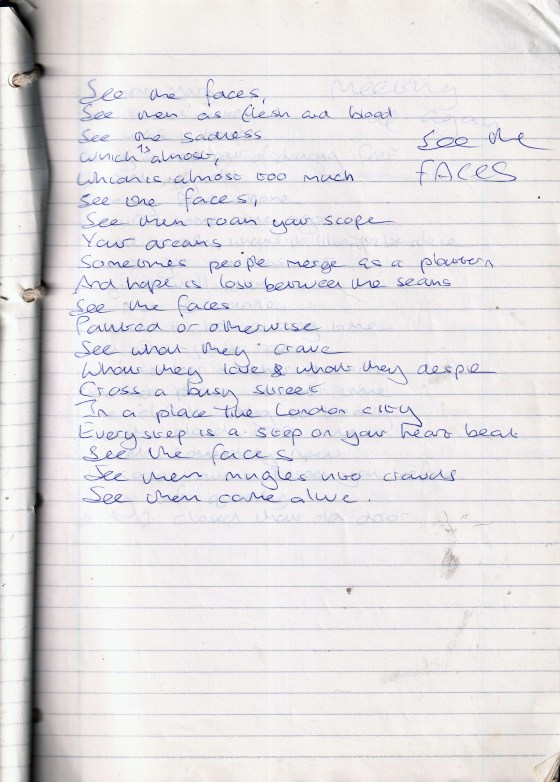 See the faces,
See them as flesh and blood
See the sadness
which is almost,
Which is almost too much
See the
FACES
See the faces,
See them roam your scope
Your dreams
Sometimes people merge as a pattern
And hope is lost between the seams
See the faces
Painted or otherwise
See what they crave
Whom they love & what they despise
Cross a busy street
In a place like London city
Every step is a step on your heart beat
See the faces
See them mingles into crowds
See them came alive.